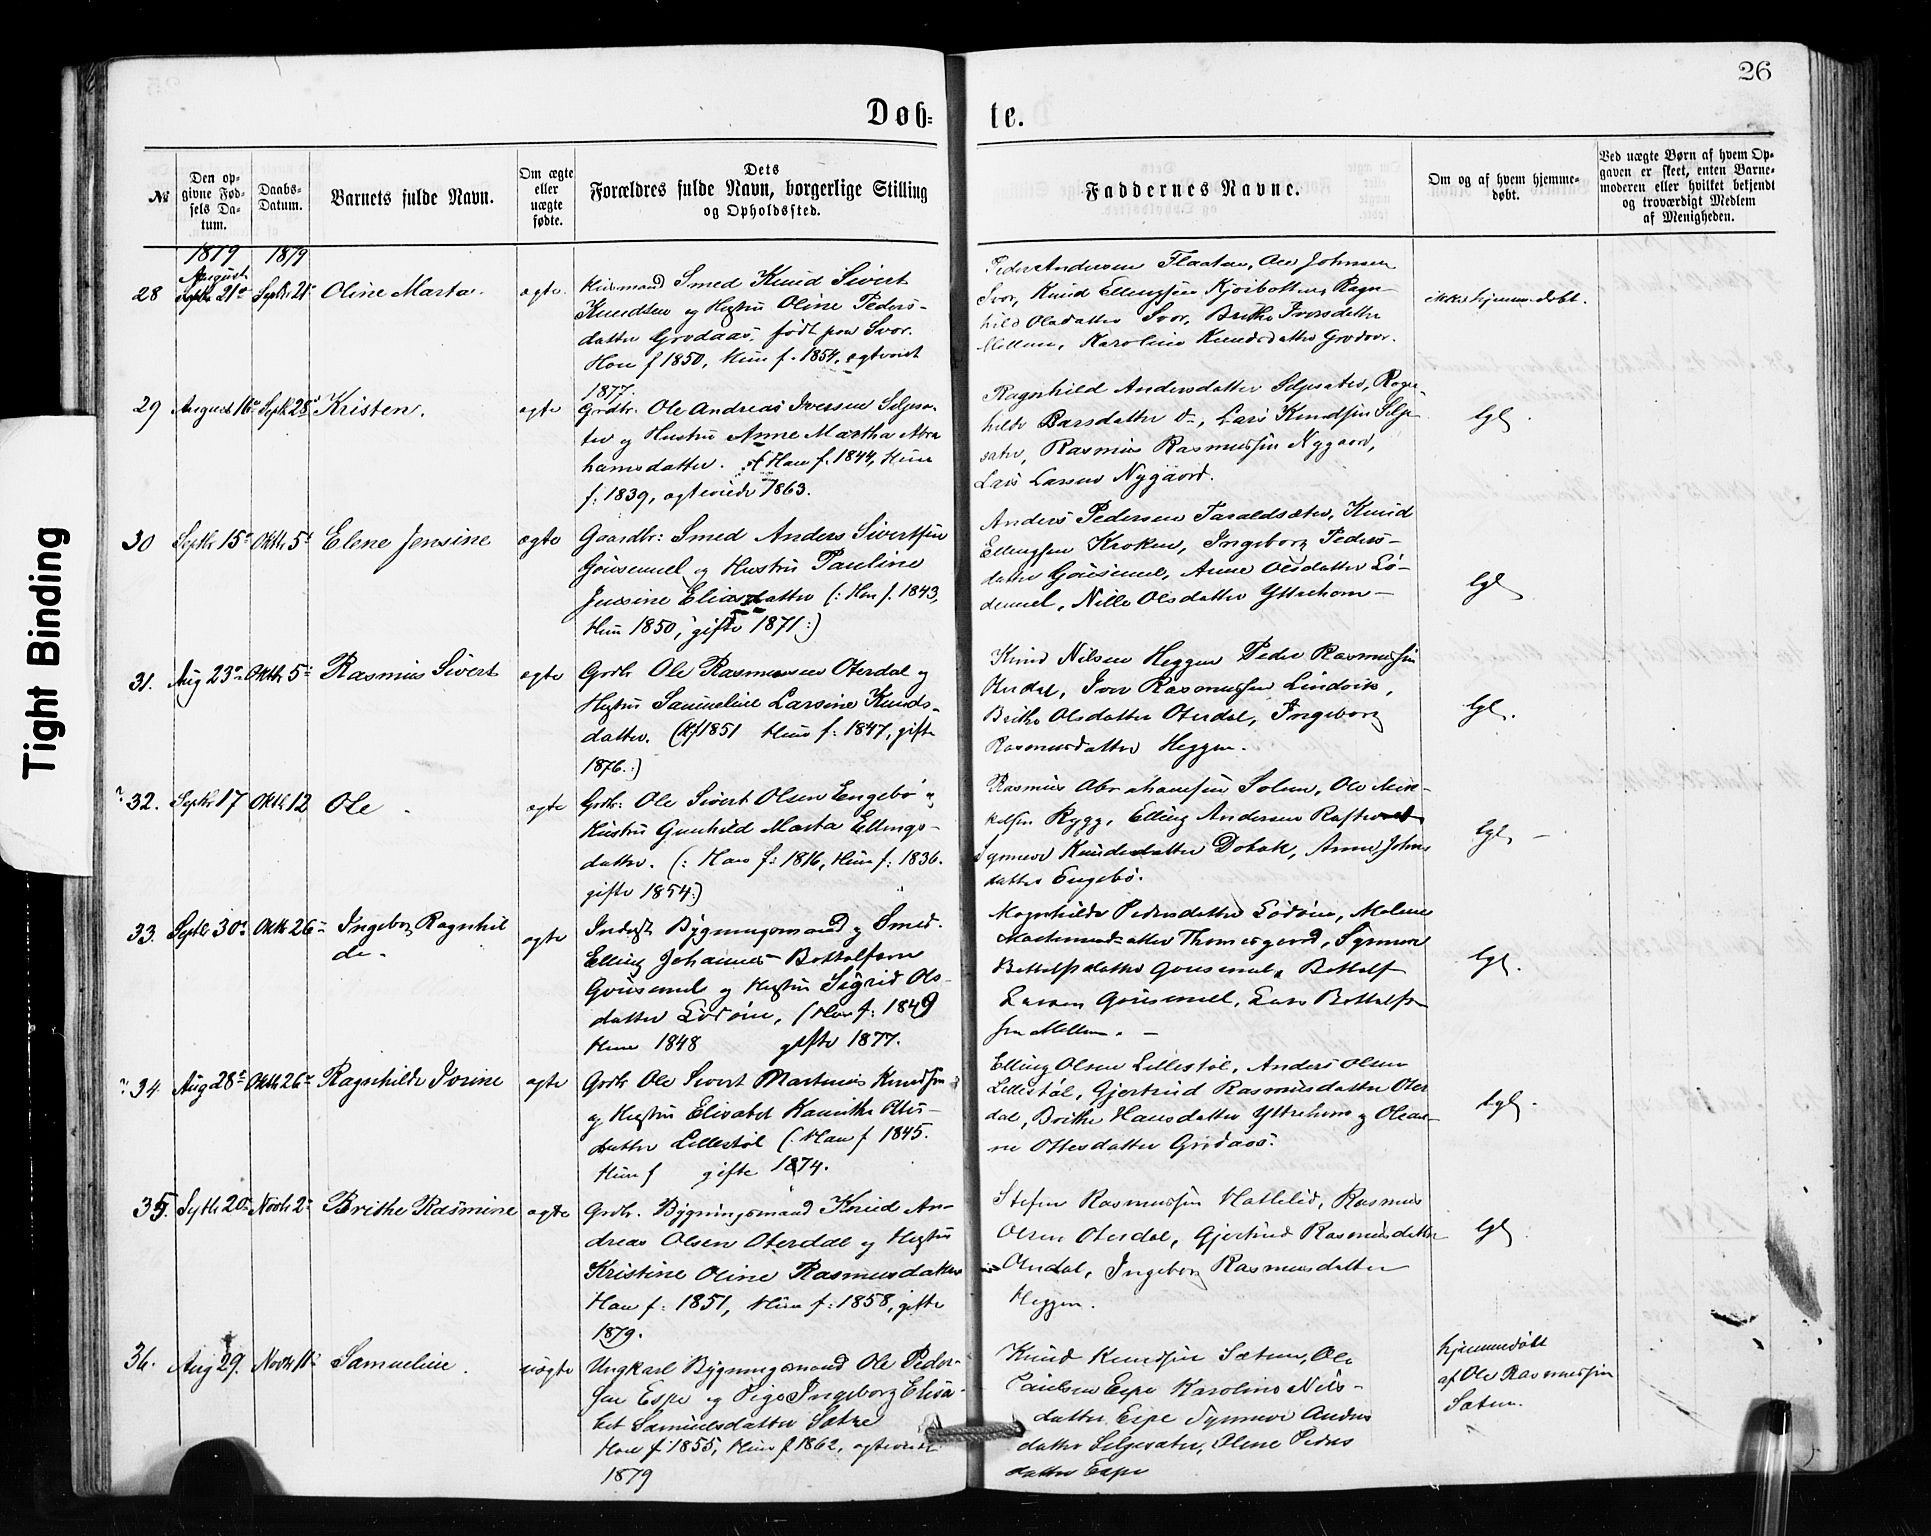 26
Døb-
te.
№
Den op-
givne Fød-
sels Da-
tum.
Daabs-
Datum.
Barnets fulde Navn.
Om ægte
eller
uægte
fødte.
Dets
Forældres fulde Navn, borgerlige Stilling
og Opholdssted.
Faddernes Navne.
Om og af hvem hjemme-
døbt.
Ved uægte Børn af hvem Op-
gaven er skeet, enten Barne-
moderen eller hvilket bekjendt
og troværdigt Medlem
af Menigheden.
1879 1879
28 August 21de Septbr 21 Oline Marta. ægte.
Smed Knud Sivert
Knudsen og Hustru Oline Peders-
datter Grodaas, født paa Svor.
Han f 1850, Hun f. 1854, ægteviet
1877.
Peder Andersen Flaaten, Ole Johnsen
Svor, Knud Ellingsen Kjosbotten, Ragn-
hild Olsdatter Svor, Brithe Iversdatter
Mellem, Karoline Knudsdatter Grodaas.
ikke hjemmedøbt.
29 August 16de Septbr 28 Kristen. ægte
Grdbr. Ole Andreas Iversen Seljese-
ter og Hustru Anne Martha Abra
hamsdatter. Han f. 1844, Hun
f. 1839, ægteviede 1863.
Ragnhild Andersdatter Seljesæter, Ragn
hilde Larsdatter Do, Lars Knudsen Selje-
sæter, Rasmus Rasmussen Nygaard,
Lars Larsen Nygaard.
lgl.
30 Septbr 15de Oktbr 5te Elene Jensine ægte
Gaardbr: Smed Anders Sivertsen
Gousemel og Hustru Pauline
Jensine Eliasdatter (: Han f. 1843,
Hun 1850, gifte 1871:)
Anders Pedersen Taraldsæter, Knud
Ellingsen Kroken, Ingeborg Peders-
datter Gousemel, Anne Olsdatter Lö-
demel, Nille Olsdatter Yttrehorn-
lgl
31. Aug 23de Oktbr 5te Rasmus Sivert ægte
Grdbr Ole Rasmussen Oterdal og
Hustru Samueline Larsine Knuds-
datter. (Hf 1851 Hun f: 1847, gifte
1876.:)
Knud Nilsen Heggen Peder Rasmussen
Oterdal, Iver Rasmussen Lindvik,
Brithe Olsdatter Oterdal, Ingeborg
Rasmusdatter Heggen.
lgl.
32. Septbr 17 Oktbr 12 Ole. ægte
Grdbr: Ole Sivert Olsen Engebö og
Hustru Gunhild Marta Ellings-
datter. (: Han f: 1816, Hun f: 1836.
gifte 1854:)
Rasmus Abrahamsen Solem, Ole Mik-
kelsen Rygg, Elling Andersen Raftevold
Synneve Knudsdatter Dobak, Anne Johns
datter Engebö.
lgl -
33. Septbr 30te Oktbr 26 Ingeborg Ragnhil
de. ægte
Inderst Bygningsmand og Smed.
Elling Johannes Bottolfsen
Gousemel og Hustru Sigrid Ols-
datter Lödöen, (Han f: 1849
Hun 1848 gifte 1877.
Magnhilde Pedersdatter Lödöen, Malene
Mortensdatter Thomasgaard, Synneve
Bottolfsdatter Gousemel, Bottolf
Larsen Gousemel, Lars Bottolfs-
sen Mellem. -
lgl.
34. Aug 28de Oktbr 26 Ragnhilde Josine ægte
Grdbr Ole Sivert Martinus Knudsen
og Hustru Elisabet Kamithe Ottis-
datter Lillestöl (: Han f 1845.
Hun f gifte 1874.
Elling Olsen Lillestöl, Anders Olsen
Lillestöl, Gjertrud Rasmusdatter Oter
dal, Brithe Hansdatter Yttrehorn og Olea-
ne Ottesdatter Grodaas.
lgl.
35. Septbr 20 Novbr 2 Brithe Rasmine ægte
Grdbr. Bygningsmand Knud An-
dreas Olsen Oterdal og Hustru
Kristine Oline Rasmusdatter
Han f: 1851, Hun f: 1858, gifte
1879.
Stefen Rasmussen Hatlelid, Rasmus
Olsen Oterdal, Gjertrud Rasmusdatter
Oterdal, Ingeborg Rasmusdatter
Heggen.
lgl.
36. Aug 29. Novbr Samueline. uægte
Ungkarl Bygningsmand Ole Peder-
sen Espe og Pige Ingeborg Elisa-
bet Samuelsdatter Sætre
Han f 1855, Hun f 1862, ægteviede
1879
Knud Knudsen Sætren, Ole
Paulsen Espe Karoline Nils-
datter Espe Synneve Anders
datter Seljesæter, Olene Peders
datter Espe
hjemmedöbt
af Ole Rasmussen
Sætren.
Tight Binding